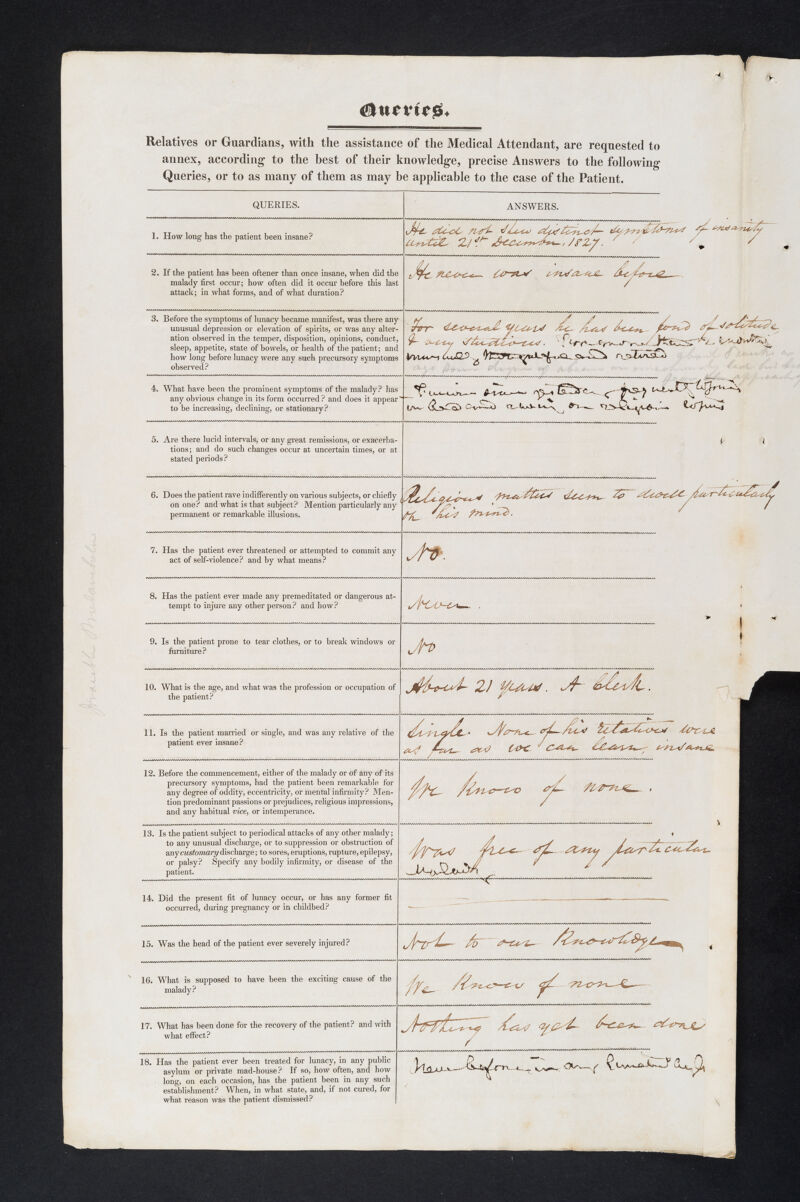 Queries.
Relatives or Guardians, with the assistance of the Medical Attendant, are requested to
annex, according to the best of their knowledge, precise Answers to the following
Queries, or to as many of them as may be applicable to the case of the Patient.
QUERIES.
ANSWERS.
1. How long has the patient been insane?
He did not shew distinct symptoms of insanity
until 21st December, 1827.
2. If the patient has been oftener than once insane, when did the
malady first occur; how often did it occur before this last
attack; in what forms, and of what duration?
He never was insane before
3. Before the symptoms of lunacy became manifest, was there any
unusual depression or elevation of spirits, or was any alter-
ation observed in the temper, disposition, opinions, conduct,
sleep, appetite, state of bowels, or health of the patient; and
how long before lunacy were any such precursory symptoms
observed?
For several years he has been fond of solitude
& very studious.
and retired
4. What have been the prominent symptoms of the malady? has
any obvious change in its form occurred? and does it appear
to be increasing, declining, or stationary?
since yesterday, frequently
in bed and on religious
5. Are there lucid intervals, or any great remissions, or exacerba-
tions; and do such changes occur at uncertain times, or at
stated periods?
6. Does the patient rave indifferently on various subjects, or chiefly
on one? and what is that subject? Mention particularly any
permanent or remarkable illusions.
Religious matters seem to dwell particularly
on his mind.
7. Has the patient ever threatened or attempted to commit any
act of self-violence? and by what means?
No.
8. Has the patient ever made any premeditated or dangerous at-
tempt to injure any other person? and how?
Never.
9. Is the patient prone to tear clothes, or to break windows or
furniture?
No
10. What is the age, and what was the profession or occupation of
the patient?
About 21 years. A Clerk.
11. Is the patient married or single, and was any relative of the
patient ever insane?
Single. None of his relatives were
as far as we can learn, insane
12. Before the commencement, either of the malady or of any of its
precursory symptoms, had the patient been remarkable for
any degree of oddity, eccentricity, or mental infirmity? Men-
tion predominant passions or prejudices, religious impressions,
and any habitual vice, or intemperance.
We know of none.
13. Is the patient subject to periodical attacks of any other malady;
to any unusual discharge, or to suppression or obstruction of
any customary discharge; to sores, eruptions, rupture, epilepsy,
or palsy? Specify any bodily infirmity, or disease of the
patient.
Was free of any particular
Malady
14. Did the present fit of lunacy occur, or has any former fit
occurred, during pregnancy or in childbed?
15. Was the head of the patient ever severely injured?
Not to our Knowledge
16. What is supposed to have been the exciting cause of the
malady?
We know of none
17. What has been done for the recovery of the patient? and with
what effect?
Nothing has yet been done
18. Has the patient ever been treated for lunacy, in any public
asylum or private mad-house? If so, how often, and how
long, on each occasion, has the patient been in any such
establishment? When, in what state, and, if not cured, for
what reason was the patient dismissed?
Never before in any Lunatic